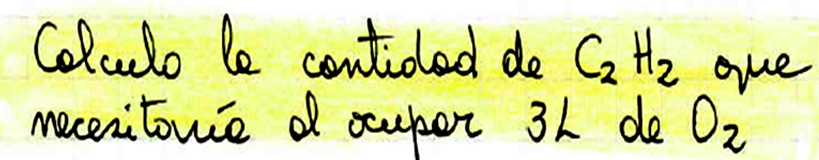 Calculo la cantidad de C₂H₂ que
necesitaría al ocupar 3L de O₂